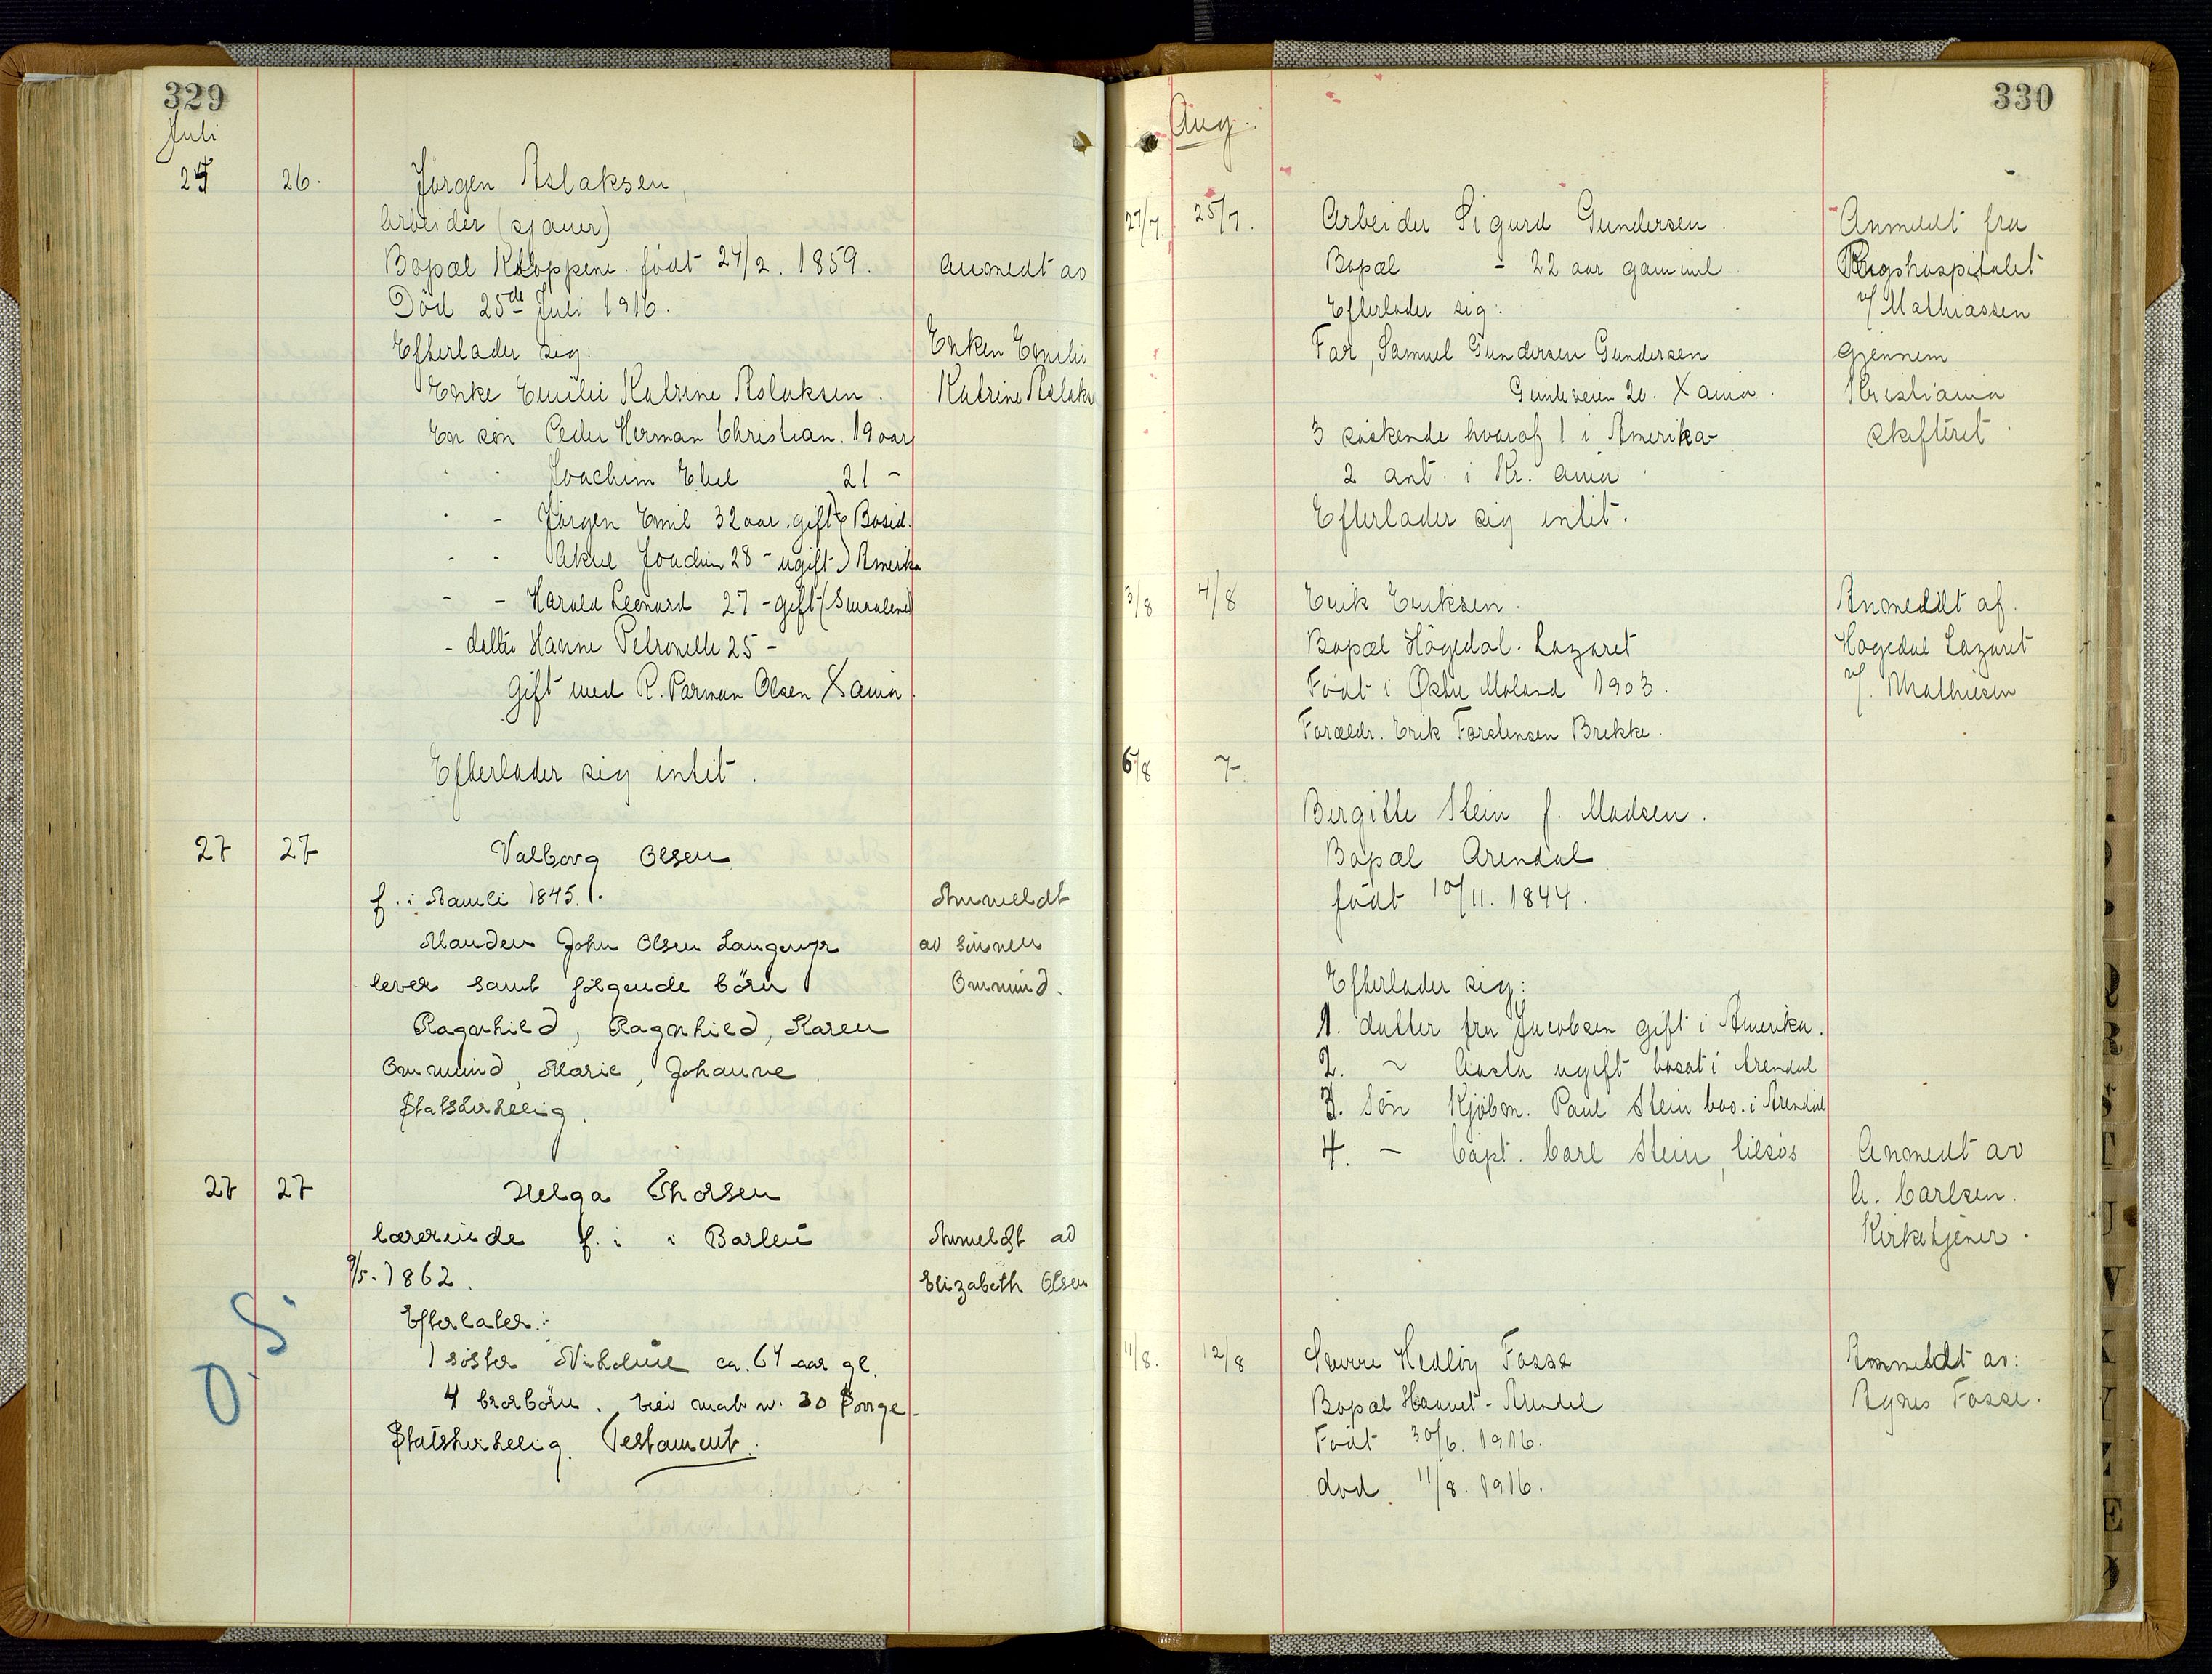 329
Juli
25 26. Jörgen Aslaksen,
Arbeider (sjauer)
Bopæl Kloppene. født 24/2. 1859. Anmedt av
Död 25de Juli 1916.
Efterlader sig: Enken Emilie
Enke Emilie Katrine Aslaksen. Katrine Aslaks
En søn Peder Herman Christian. 19 aar
" " Joachim Ebel 21 -
" - Jörgen Emil 32 aar. gift } Bosid.
- - Aksel Joachim 28 - ugift } Amerika
- - Harald Leonard 27 - gift
- datter Hanne Petronelle 25 -
gift med R. Parman Olsen Xania.
Efterlader sig intet.
27 27 Valborg Olsen
f. i Aamli 1845. Anmeldt
Manden John Olsen Langemyr av sönnen
lever samt følgende börn Ommund.
Ragnhild, Ragnhild, Karen
Ommund, Marie, Johanne
Statskirkelig.
27 27 Helga Thorsen
lærerinde f. i i Barbu Anmeldt av
9/5. 1862. Elizabeth Olsen
Efterlater:
1 søster ca. 64 aar gl.
4 brorbörn.
Statskirkelig. Testament.
O. S
330
Aug.
27/7. 25/7. Arbeider Sigurd Gundersen. Anmeldt fra
Bopæl - 22 aar gammel Rigshospitalet
Efterlader sig: v/ Mathiassen
Far, Samuel Gundersen Gundersen gjennem
20. Xania. Kristiania
3 søskende hvoraf 1 i Amerika- skifteret.
2 ant. i Kr. ania
Efterlader sig intet.
3/8 4/8 Erik Eriksen. Anmeldt af.
Bopæl Högedal. Lazaret Högedal Lazaret
Født i Østre Moland 1903. v/. Mathiesen
Foræld. Erik Brekke.
6/8 7-
Birgitte Stein f. Madsen.
Bopæl Arendal
født 10/11. 1844.
Efterlader sig:
1. datter fru Jacobsen gift i Amerika.
2. ~ Aasta ugift bosat i Arendal
3. Søn Kjöbm. Paul Stein bos. i Arendal
4. - Capt. Carl Stein, tilsøs Anmedt av
A. Carlsen.
Kirketjener.
11/8. 12/8 Sverre Hedløy Fosse Anmeldt av:
Bopæl - Arendal Agnes Fosse.
Født 30/6. 1916.
død 11/8. 1916.